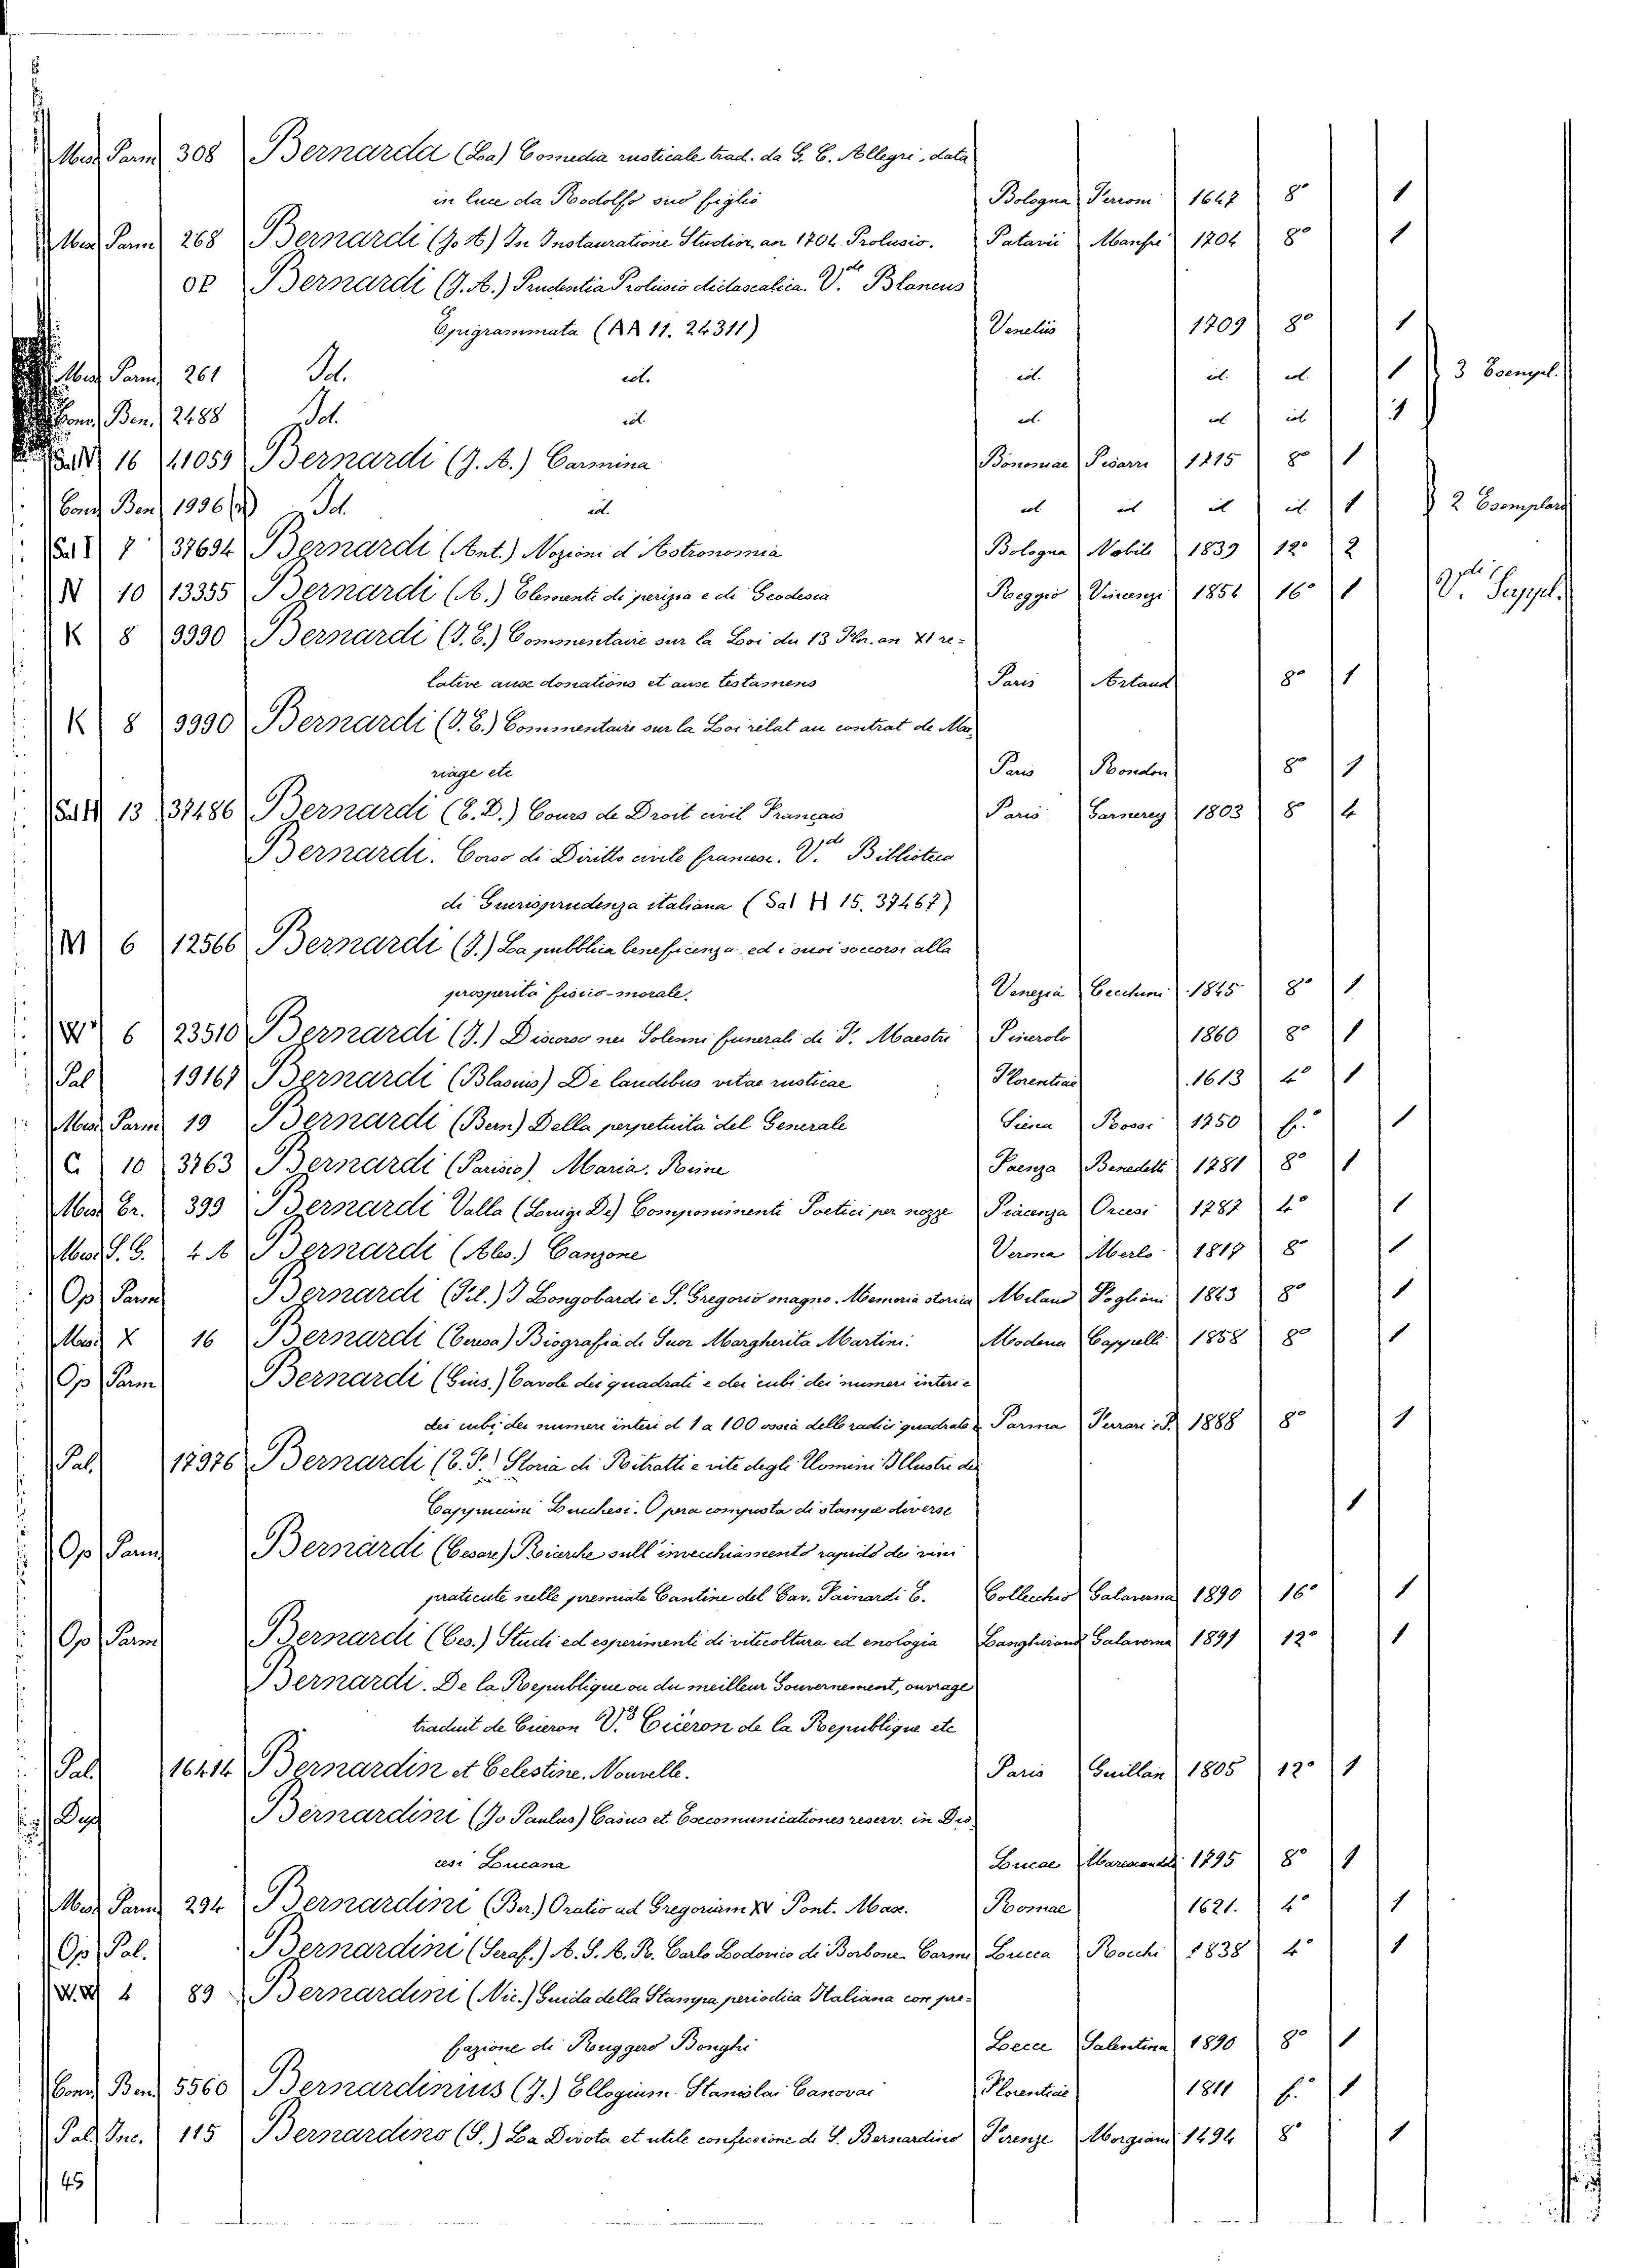 Misc Parm 308 Bernarda (La) Comedia rusticale trad. da G. C. Allegri, data
in luce da Rodolfo suo figlio Bologna Perroni 1647 8° 1
Misc Parm 268 Bernardi (Jo A) In Instauratione Studior. an 1704 Prolusio. Patavii Manfrè 1704 8° 1
Bernardi (J. A.) Prudentia Prolusio didascalica. V.de Blancus
Epigrammata (AA 11. 24311) Venetiis 1709 8° 1
Misc Parm 261 Id. id. id. id. id. 1 3 Esempl.
Conv. Ben. 2488 Id. id. id. id id 1
Sal N 16 41059 Bernardi (J. A.) Carmina Bononiae Pisarri 1715 8° 1
Conv Ben 1996 Id. id. id id id id. 1 2 Esemplari
Sal I 7 37694 Bernardi (Ant.) Nozioni d'Astronomia Bologna Nobili 1839 12° 2
N 10 13355 Bernardi (A.) Elementi di perizia e di Geodesia Reggio Vincenzi 1854 16° 1 V. Suppl.
K 8 9990 Bernardi (J. C.) Commentaire sur la Loi du 13 Flor. an XI re-
lative aux donations et aux testamens Paris Artaud 8° 1
K 8 9990 Bernardi (J. C.) Commentaire sur la Loi rélat au contrat de Ma-
riage etc Paris Rondon 8° 1
Sal H 13 37486 Bernardi (E. D.) Cours de Droit civil Français Paris. Garnerey 1803 8° 4
Bernardi. Corso di Diritto civile francese. V.de Biblioteca
di Giurisprudenza italiana (Sal H 15. 37467)
M 6 12566 Bernardi (J.) La pubblica beneficenza ed i suoi soccorsi alla
prosperità fisico-morale. Venezia Cecchini 1845 8° 1
6 23510 Bernardi (J.) Discorso nei Solenni funerali di P. Maestri Pinerolo 1860 8° 1
Pal 19167 Bernardi (Blasius) De laudibus vitae rusticae Florentiae 1613 4° 1
Misc Parm 19 Bernardi (Bern) Della perpetuità del Generale Siena Rossi 1750 f.° 1
C. 10 3763 Bernardi (Parisio). Maria. Rime Faenza Benedetti 1781 8° 1
Misc Er. 399 Bernardi Valla (Luig. De) Componimenti Poetici per nozze Piacenza Orcesi 1787 4° 1
Misc S. G. 4 A Bernardi (Ales.) Canzone Verona Merlo 1817 8° 1
Op Parm Bernardi (Fil.) I Longobardi e S. Gregorio magno. Memoria storica Milano Pogliani 1843 8° 1
Misc X 16 Bernardi (Teresa) Biografia di Suor Margherita Martini. Modena Cappelli 1858 8° 1
Op Parm Bernardi (Gius.) Tavole dei quadrati e dei cubi dei numeri interi e
dei cubi dei numeri interi d 1 a 100 ossia delle radici quadrate e Parma Ferrari e P. 1888 8° 1
Pal. 17976 Bernardi (C. F.) Storia di Ritratti e vite degli Uomini Illustri dei
Cappuccini Lucchesi. Opera composta di stampe diverse 1
Op Parm Bernardi (Cesare) Ricerche sull'invecchiamento rapido dei vini
praticate nelle premiate Cantine del Cav. Painardi C. Collecchio Galaverna 1890 16° 1
Op Parm Bernardi (Ces.) Studi ed esperimenti di viticoltura ed enologia Langhirano Galaverna 1891 12° 1
Bernardi. De la Republique ou du meilleur Gouvernement, ouvrage
traduit de Cicéron V. Cicéron de la Republique etc
Pal. 16414 Bernardin et Celestine. Nouvelle. Paris Guillan 1805 12° 1
Dup Bernardini (Jo Paulus) Casus et Excomunicationes reserv. in Dio-
cesi Lucana Lucae Marescandoli 1795 8° 1
Misc Parm 294 Bernardini (Ber.) Oratio ad Gregorium XV Pont. Max. Romae 1621. 4° 1
Op Pal. Bernardini (Seraf.) A. S. A. R. Carlo Lodovico di Borbone Carme Lucca Rocchi 1838 4° 1
4 89 Bernardini (Nic.) Guida della Stampa periodica Italiana con pre-
fazione di Ruggero Bonghi Lecce Salentina 1890 8° 1
Conv Ben 5560 Bernardinius (J.) Ellogium Stanislai Canovai Florentiae 1811 f.° 1
Pal Inc. 115 Bernardino (S.) La Divota et utile confessione di S. Bernardino Firenze Morgiani 1494 8° 1
45